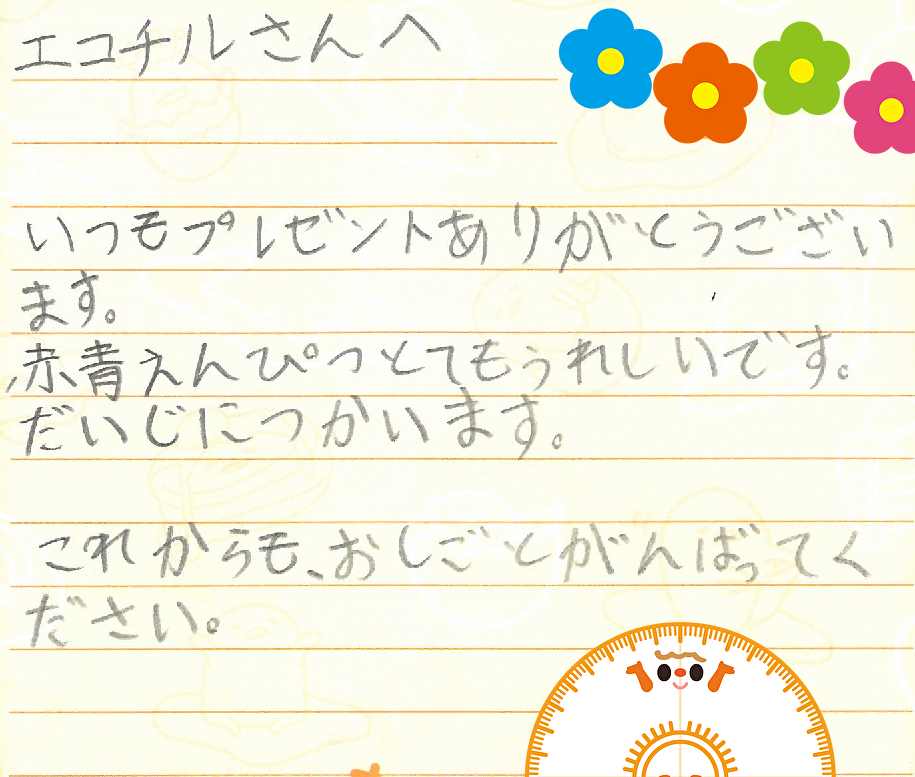 エコチルさんへ
いつもプレゼントありがとうござい
ます。
赤青えんぴつとてもうれしいです。
だいじにつかいます。
これからも、おしごとがんばってく
ださい。